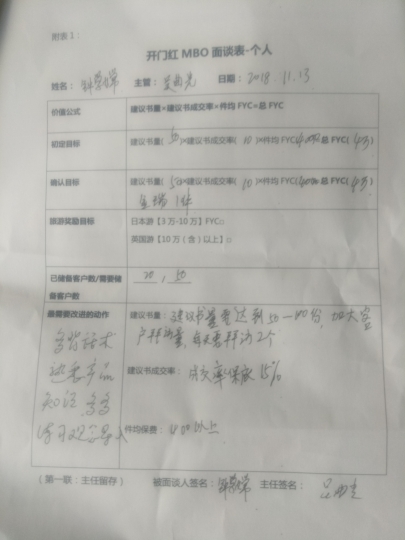 附表1：
开门红 MBO 面谈表-个人
姓名： 主管： 日期：2018.11.13
价值公式 建议书量×建议书成交率×件均 FYC=总 FYC
初定目标 建议书量( 50 )×建议书成交率( 10 )×件均 FYC( )=总 FYC( 4万)
确认目标 建议书量( 50 )×建议书成交率( 10 )×件均 FYC( )=总 FYC( 4万)
1件
旅游奖励目标 日本游【3万-10万】FYC□
英国游【10万（含）以上】□
已储备客户数/需要储备客户数 20，50
最需要改进的动作 建议书量：建议书量要达到50—100份，加大客
户拜访量，每天要拜访2个
多背话术
建议书成交率： 成交率 15%
产品
知识 多多
件均保费：400以上
（第一联：主任留存） 被面谈人签名： 主任签名：